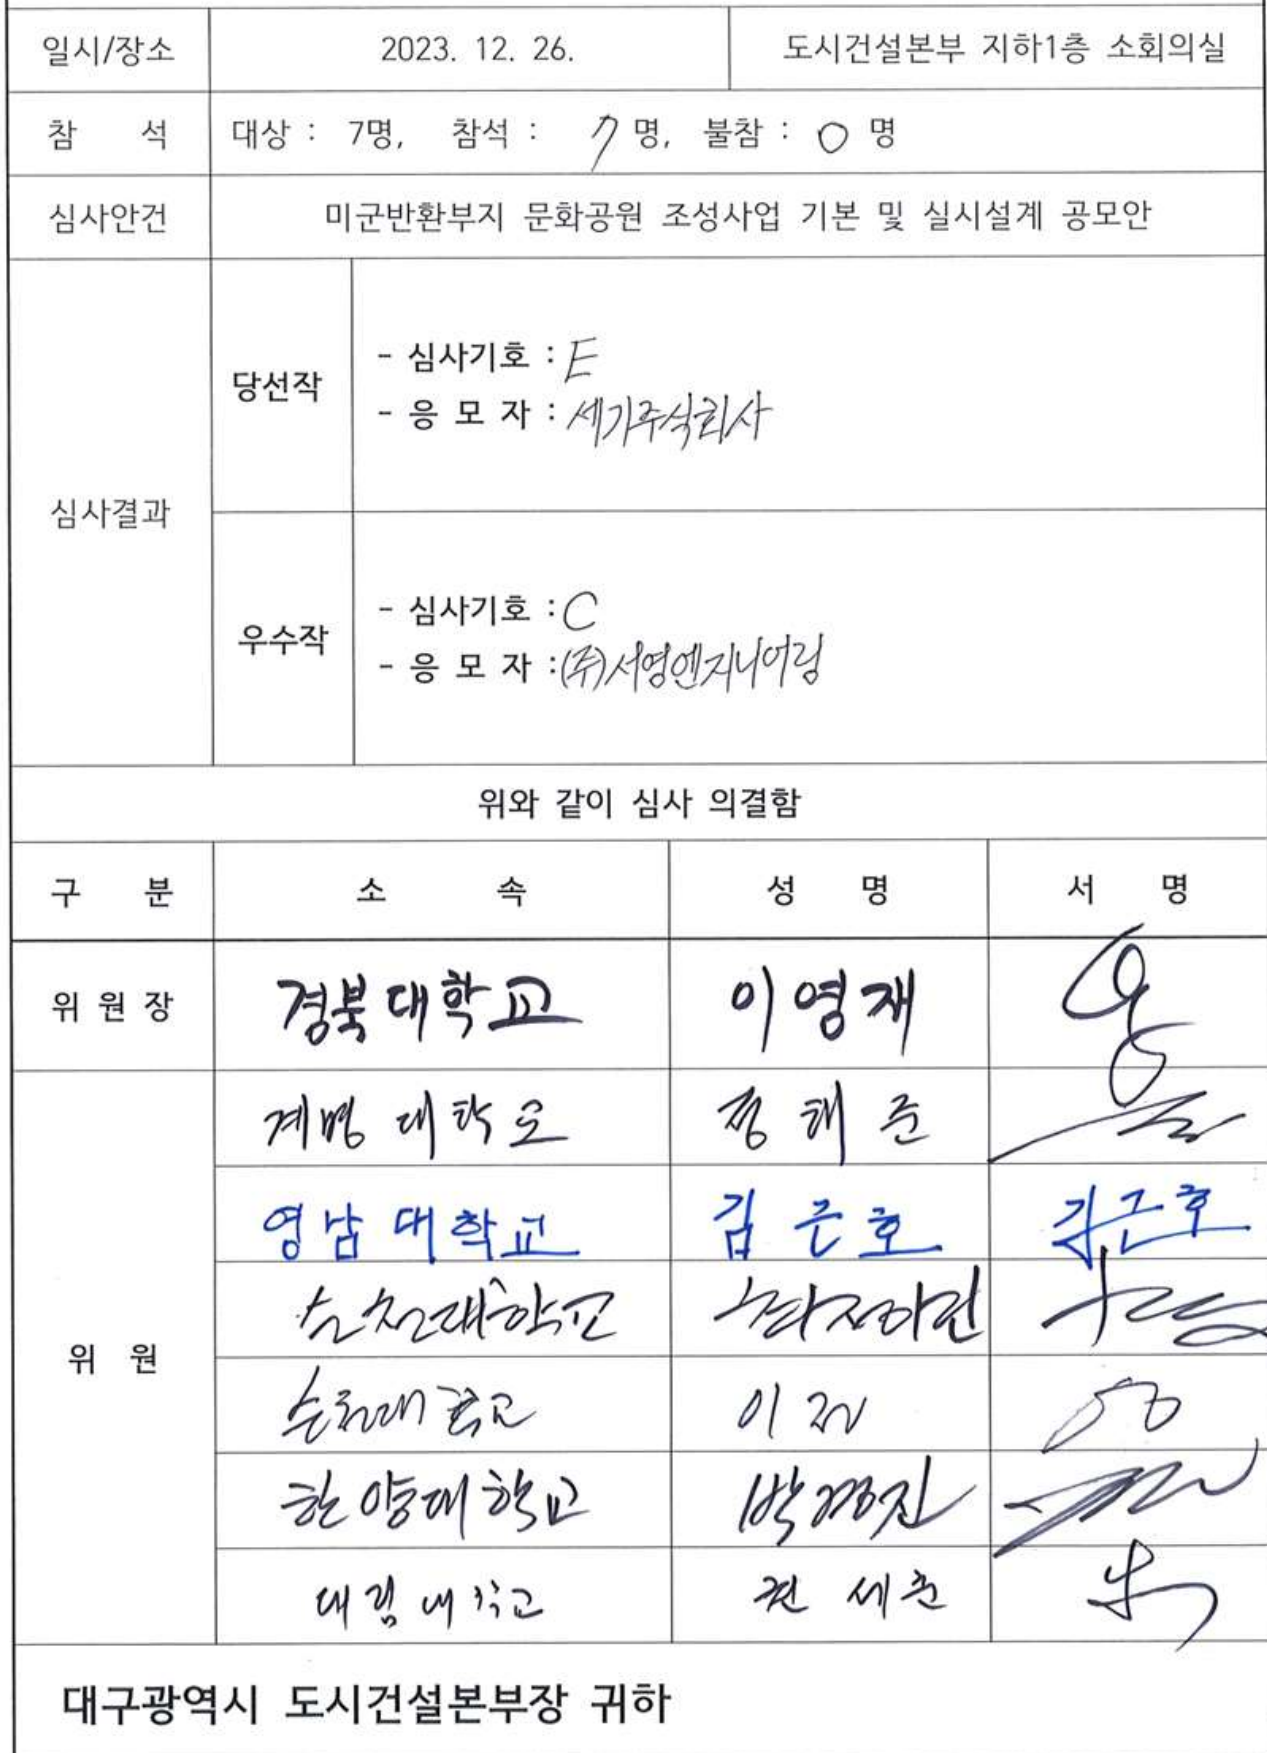 일시/장소 2023. 12. 26. 도시건설본부 지하1층 소회의실
참 석 대상 : 7명, 참석 : 7명, 불참 : 0명
심사안건 미군반환부지 문화공원 조성사업 기본 및 실시설계 공모안
심사결과
당선작
- 심사기호 : E
- 응 모 자 : 세기주식회사
우수작
- 심사기호 : C
- 응 모 자 : (주)서영엔지니어링
위와 같이 심사 의결함
구 분 소 속 성 명 서 명
위 원 장 경북대학교 이영재
위 원
계명대학교 정해준
영남대학교 김근호 김근호
순천대학교
순천대학교 이
한양대학교 박경진
대림대학교 권세춘
대구광역시 도시건설본부장 귀하